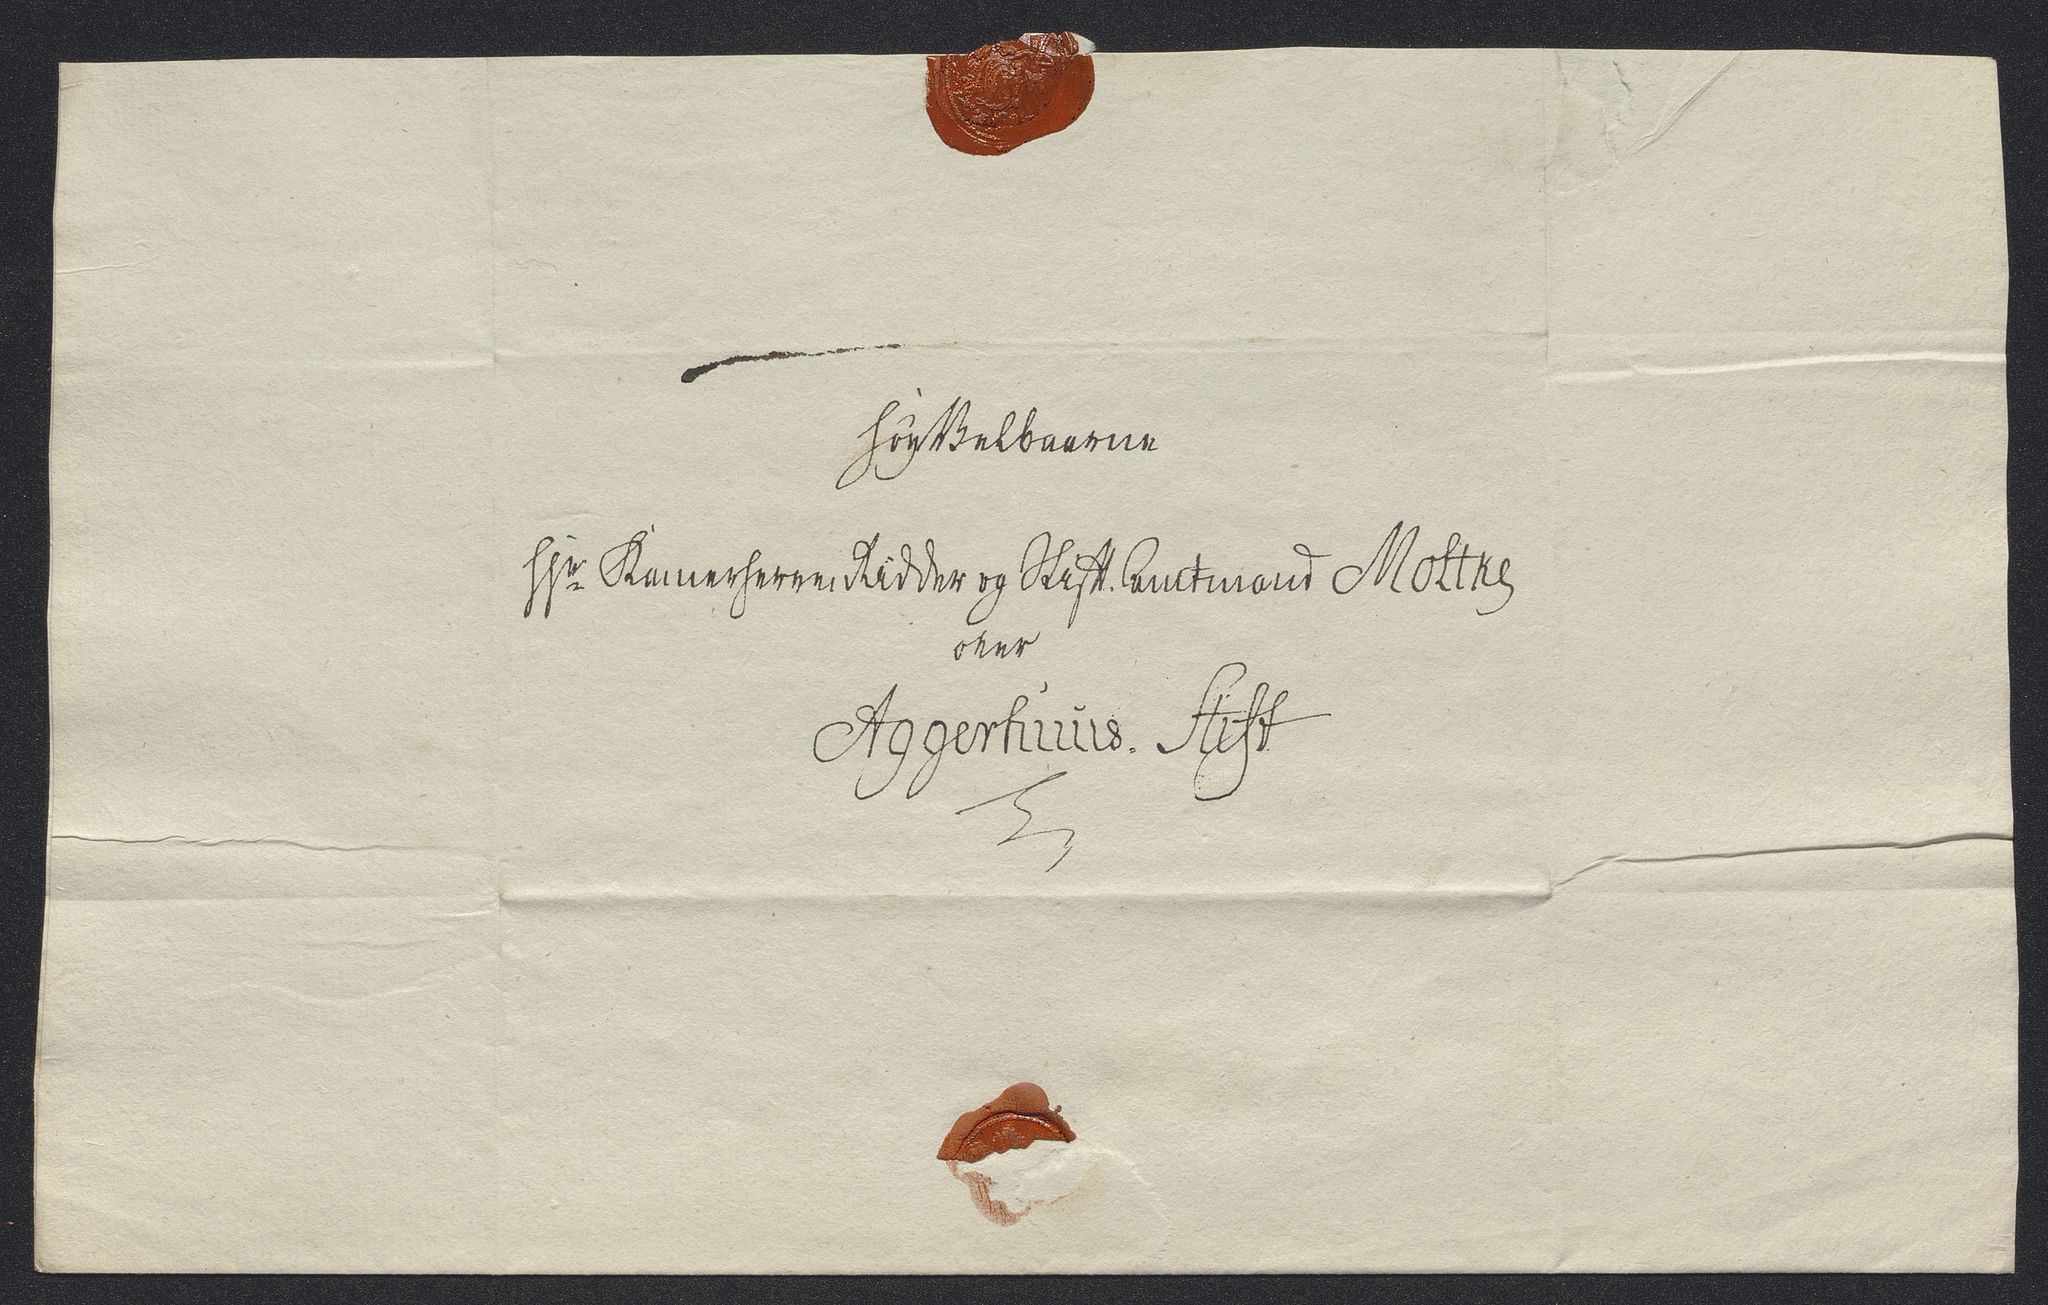 HöyVelbaarne
Hr. Kamerherren Ridder og Stift. Amtmand Moltke
over
Aggerhuus. Stift